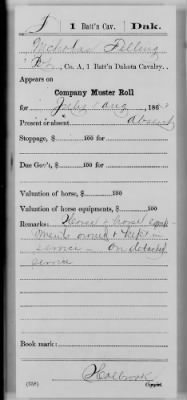 1 Batt'n Cav. Dak.
Nicholas
Co. A, 1 Batt'n Dakota Cavalry.
Appears on
Company Muster Roll
for July & Aug, 186
Present or absent Absent
Stoppage, $ 100 for
Due Gov't, $ 100 for
Valuation of horse, $ 100
Valuation of horse equipments, $ 100
Remarks: Horse & horse equip
ments owned & kept in
service — On detached
service
Book mark:
Holbrook
(358) Copyist.